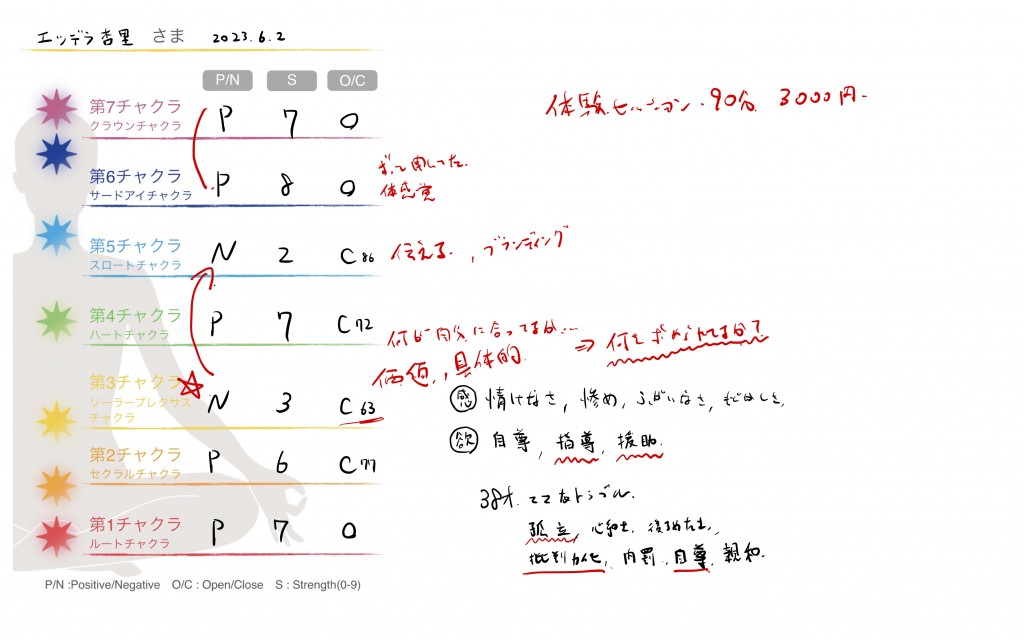 エッデラ杏里 さま 2023.6.2
P/N S O/C
体験セッション・90分 3000円.
第7チャクラ
クラウンチャクラ P 7 O
ずっと用してた
第6チャクラ
サードアイチャクラ P 8 O
体感覚
第5チャクラ
スロートチャクラ N 2 C 86 伝える, ブランディング
第4チャクラ
ハートチャクラ P 7 C 72
何が自分に合ってるか... ⇒ 何を求められてるか?
価値, 具体的.
第3チャクラ
ソーラープレクサス
チャクラ N 3 C 63
感 情けなさ, 惨め, ふがいなさ, もどかしさ,
欲 自尊, 指導, 援助.
第2チャクラ
セクラルチャクラ P 6 C 77
38才. ママ友トラブル.
第1チャクラ
ルートチャクラ P 7 O
孤立, 心細さ, 後ろめたさ,
批判 劣化, 内罰, 自尊, 親和.
P/N :Positive/Negative O/C : Open/Close S : Strength(0-9)